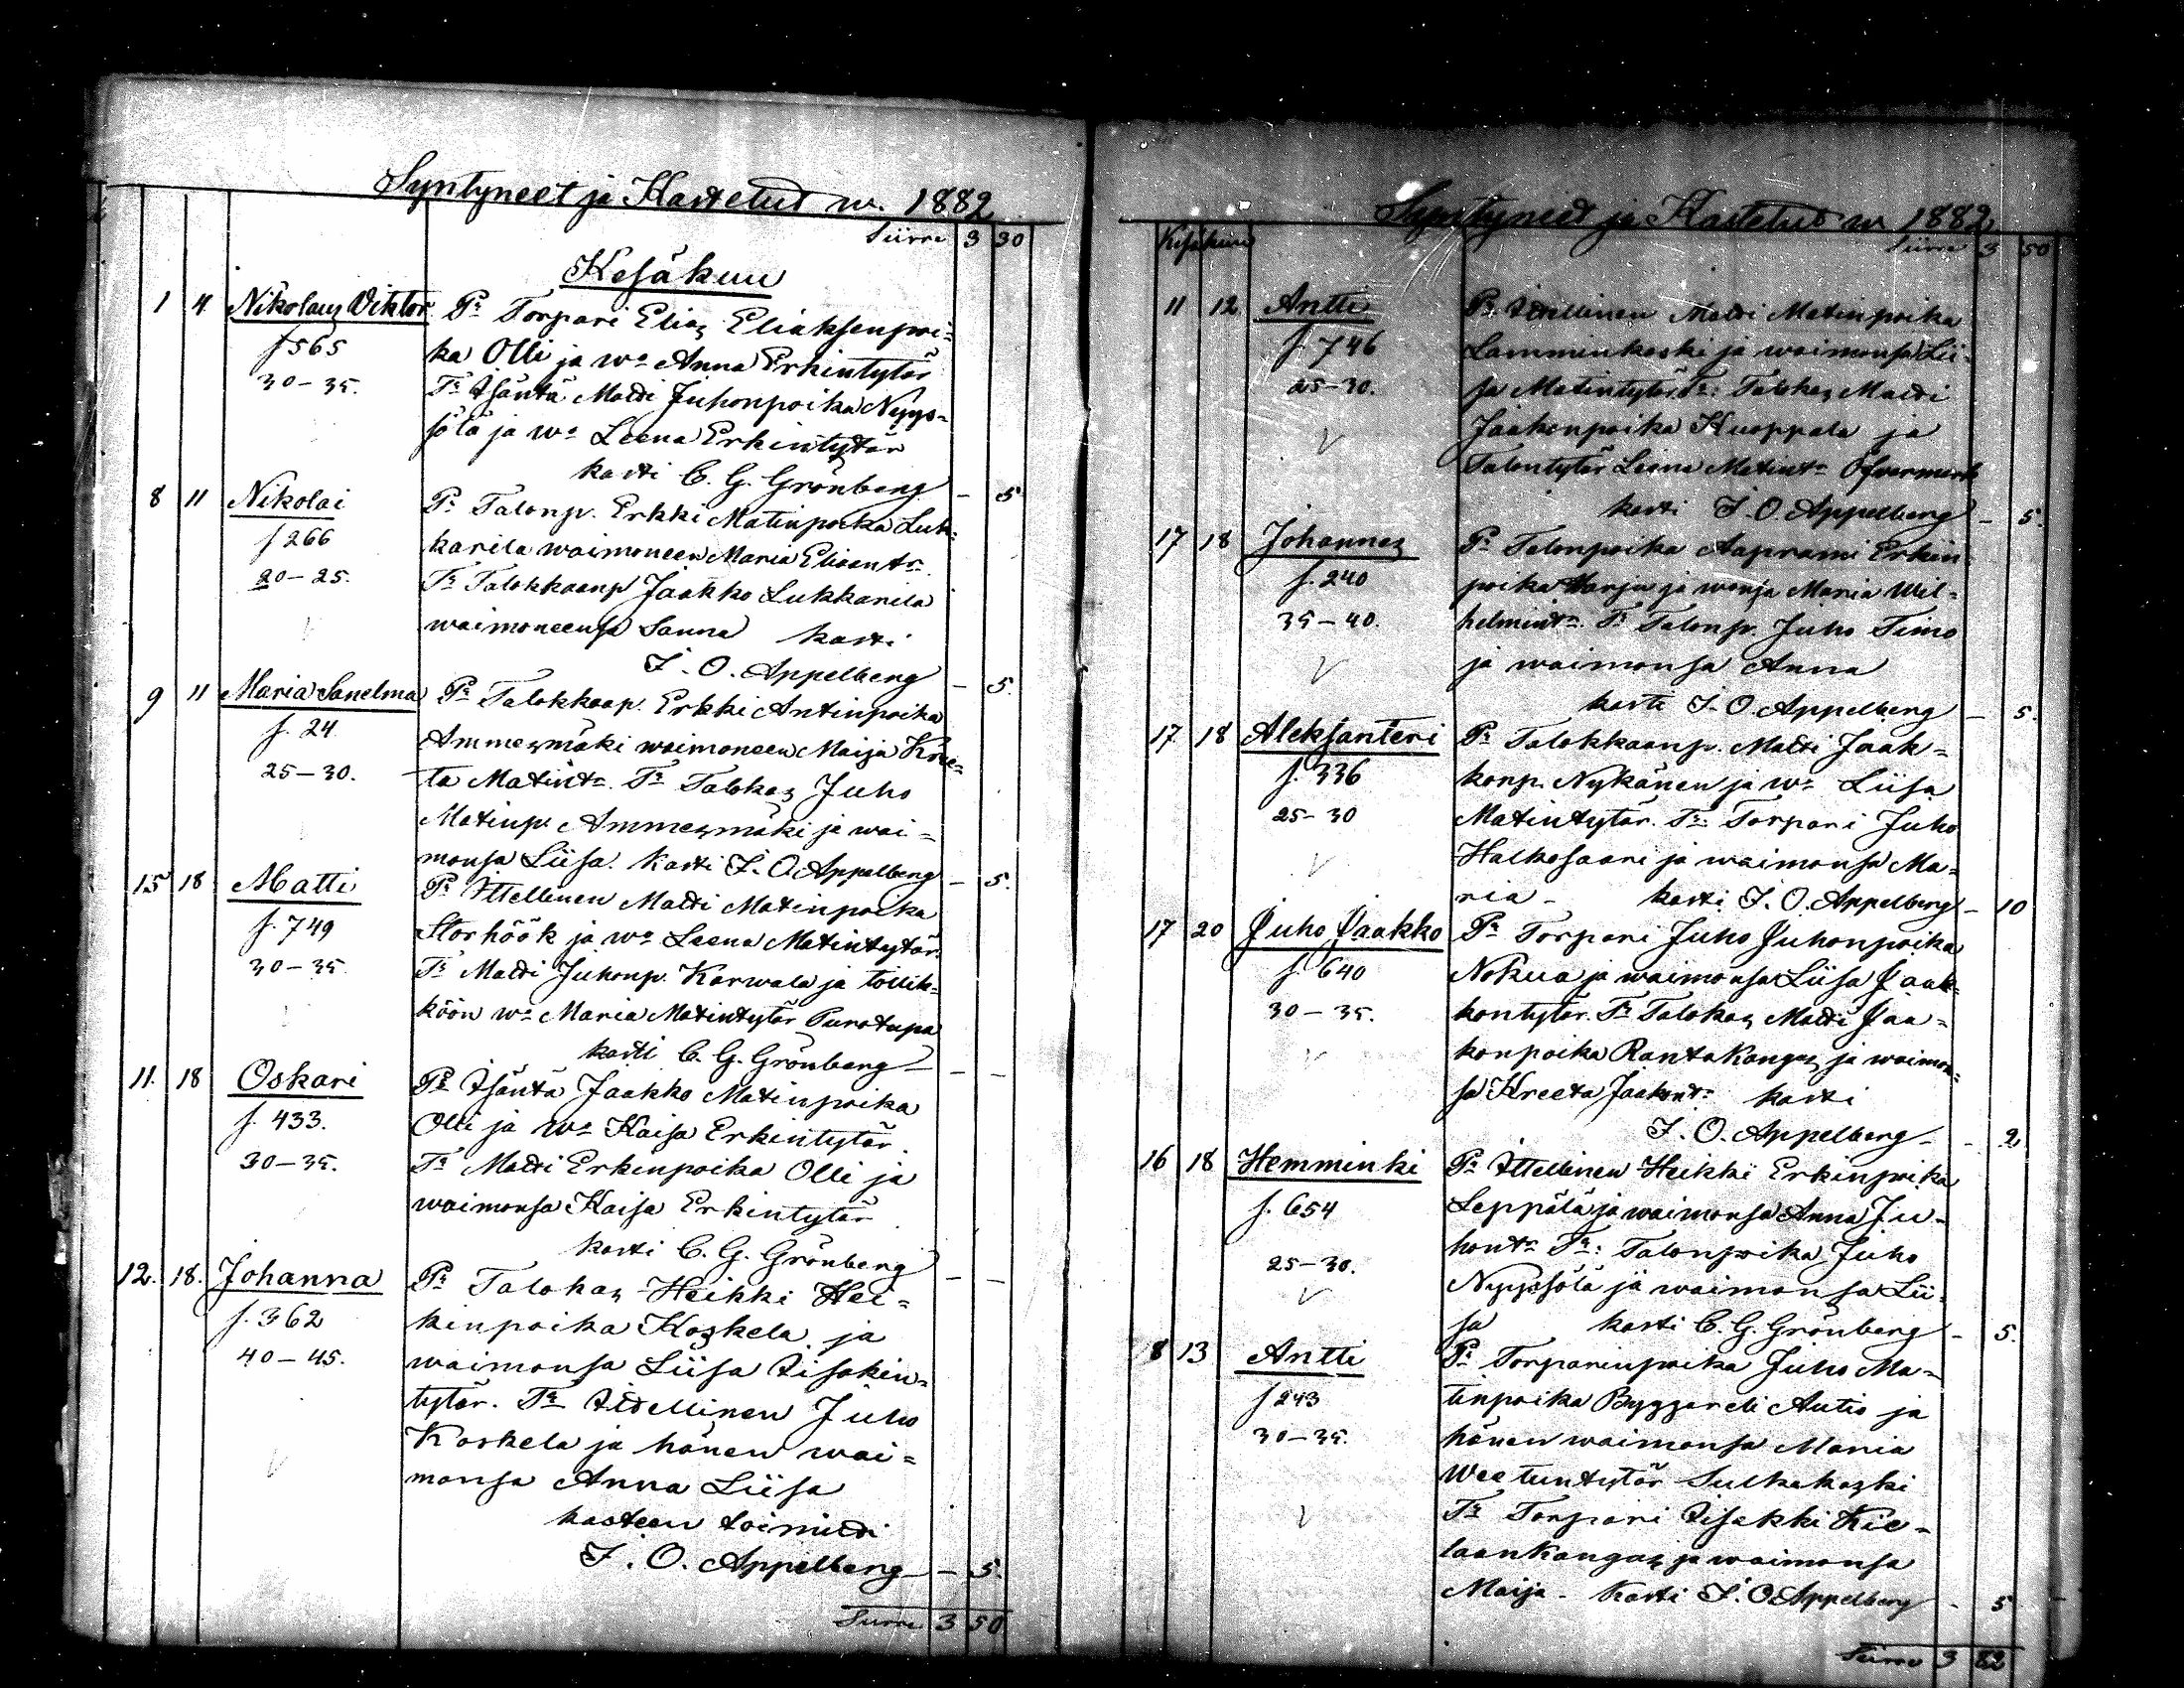 Syntyneet ja Kastetut w. 1882
Siirre 3 30
Kesäkuu
1 4 Nikolaus Viktor Pr Torpari Elias Eliaksenpoi-
f 565 ka Olli ja wo Anna Erkintytär
30–35. Tr Isäntä Matti Juhonpoika Nyys-
sölä ja wo Leena Erkintytär
kasti C. G. Grönberg – 5
8 11 Nikolai Pr Talonp. Erkki Matinpoika Luk-
f 266 karila waimoneen Maria Eliantr
20–25. Tr Talokkaanp Jaakko Lukkarila
waimoneensa Sanna kasti
J. O. Appelberg – 5.
9 11 Maria Sanelma Pr Talokkaap. Erkki Antinpoika
f. 24 Ammesmäki waimoneen Maija Kree-
25–30. ta Matintr. Tr Talokas Juho
Matinp. Ammesmäki ja wai-
monsa Liisa. Kasti J. O. Appelberg – 5.
15 18 Matti Pr Ittellinen Matti Matinpoika
f. 749 Storhöök ja wo Leena Matintytär.
30–35 Tr Matti Juhonp. Karwala ja
köön wo Maria Matintytär Purotupa
kasti C. G. Grönberg – – –
11. 18 Oskari Pr Isäntä Jaakko Matinpoika
f. 433. Olli ja wo Kaisa Erkintytär.
30–35. Tr Matti Erkinpoika Olli ja
waimonsa Kaisa Erkintytär
kasti C. G. Grönberg – –
12. 18. Johanna Pr Talokas Heikki Hei-
f. 362 kinpoika Koskela ja
40–45. waimonsa Liisa Iisakin-
tytär. Tr Itellinen Juho
Koskela ja hänen wai-
monsa Anna Liisa
kasteen toimitti
J. O. Appelberg – 5.
Siirre 3 50
Syntyneet ja Kastetut w 1882
Kesäkuu Siirre 3 50
11 12 Antti Pr Itellinen Matti Matinpoika
f. 746 Lamminkoski ja waimonsa Lii-
25–30. sa Matintytär Tr: Talokas Matti
Jaakonpoika Kuoppala ja
Talontytär Leena Matintr Öfvermark
kasti J. O. Appelberg – 5.
17 18 Johannes Pr Talonpoika Aaprami Erkin-
f. 240 poika Harju ja wonsa Maria Wil-
35–40. helmintr. Tr Talonp. Juho Timo
ja waimonsa Anna
kasti J. O. Appelberg – 5.
17 18 Aleksanteri Pr Talokkaanp. Matti Jaak-
f. 336 konp. Nykänen ja wo Liisa
25–30 Matintytär. Tr: Torpari Juho
Halkosaari ja waimonsa Ma-
ria – kasti J. O. Appelberg – 10
17 20 Juho Jaakko Pr Torpari Juho Juhonpoika
f. 640 Nokua ja waimonsa Liisa Jaak-
30–35. kontytär. Tr Talokas Matti Jaa-
konpoika Rantakangas ja waimon-
sa Kreeta Jaakontr kasti
J. O. Appelberg – – 2
16 18 Hemminki Pr Ittellinen Heikki Erkinpoika
f. 654 Leppälä ja waimonsa Anna Ju-
25–30. hontr Tr: Talonpoika Juho
Nyyssölä ja waimonsa Lii-
sa kasti C. G. Grönberg – 5.
8 13 Antti Pr Torparinpoika Juho Ma-
f 243 tinpoika Byggar eli Autio ja
30–35. hänen waimonsa Maria
Weetuntytär Sulkakoski
Tr Torpari Iisakki Kie-
laankangas ja waimonsa
Maija – Kasti J. O. Appelberg – 5
Siirre 3 82